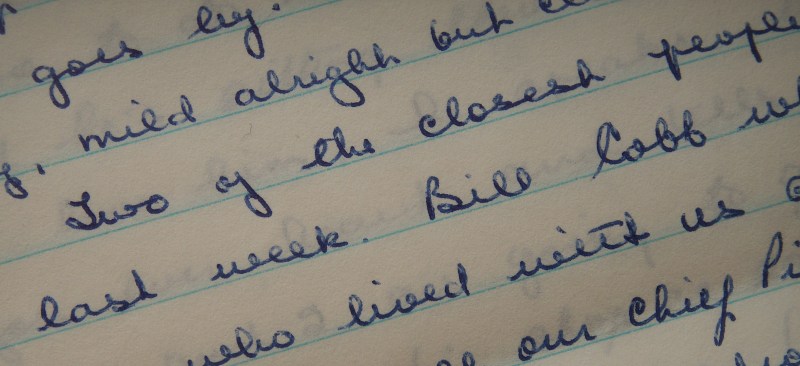 goes by.
mild alright but
Two of the closest people
last week. Bill Cobb
who lived with us
our chief